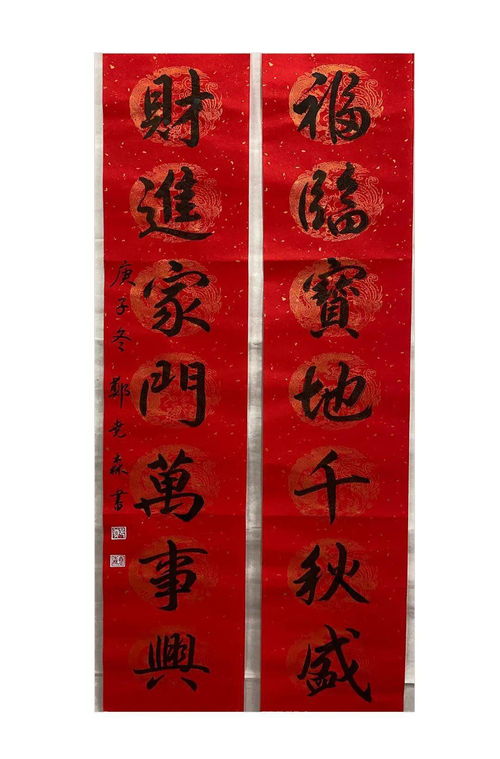 福臨寶地千秋盛
財進家門萬事興
庚子冬 鄭堯森書